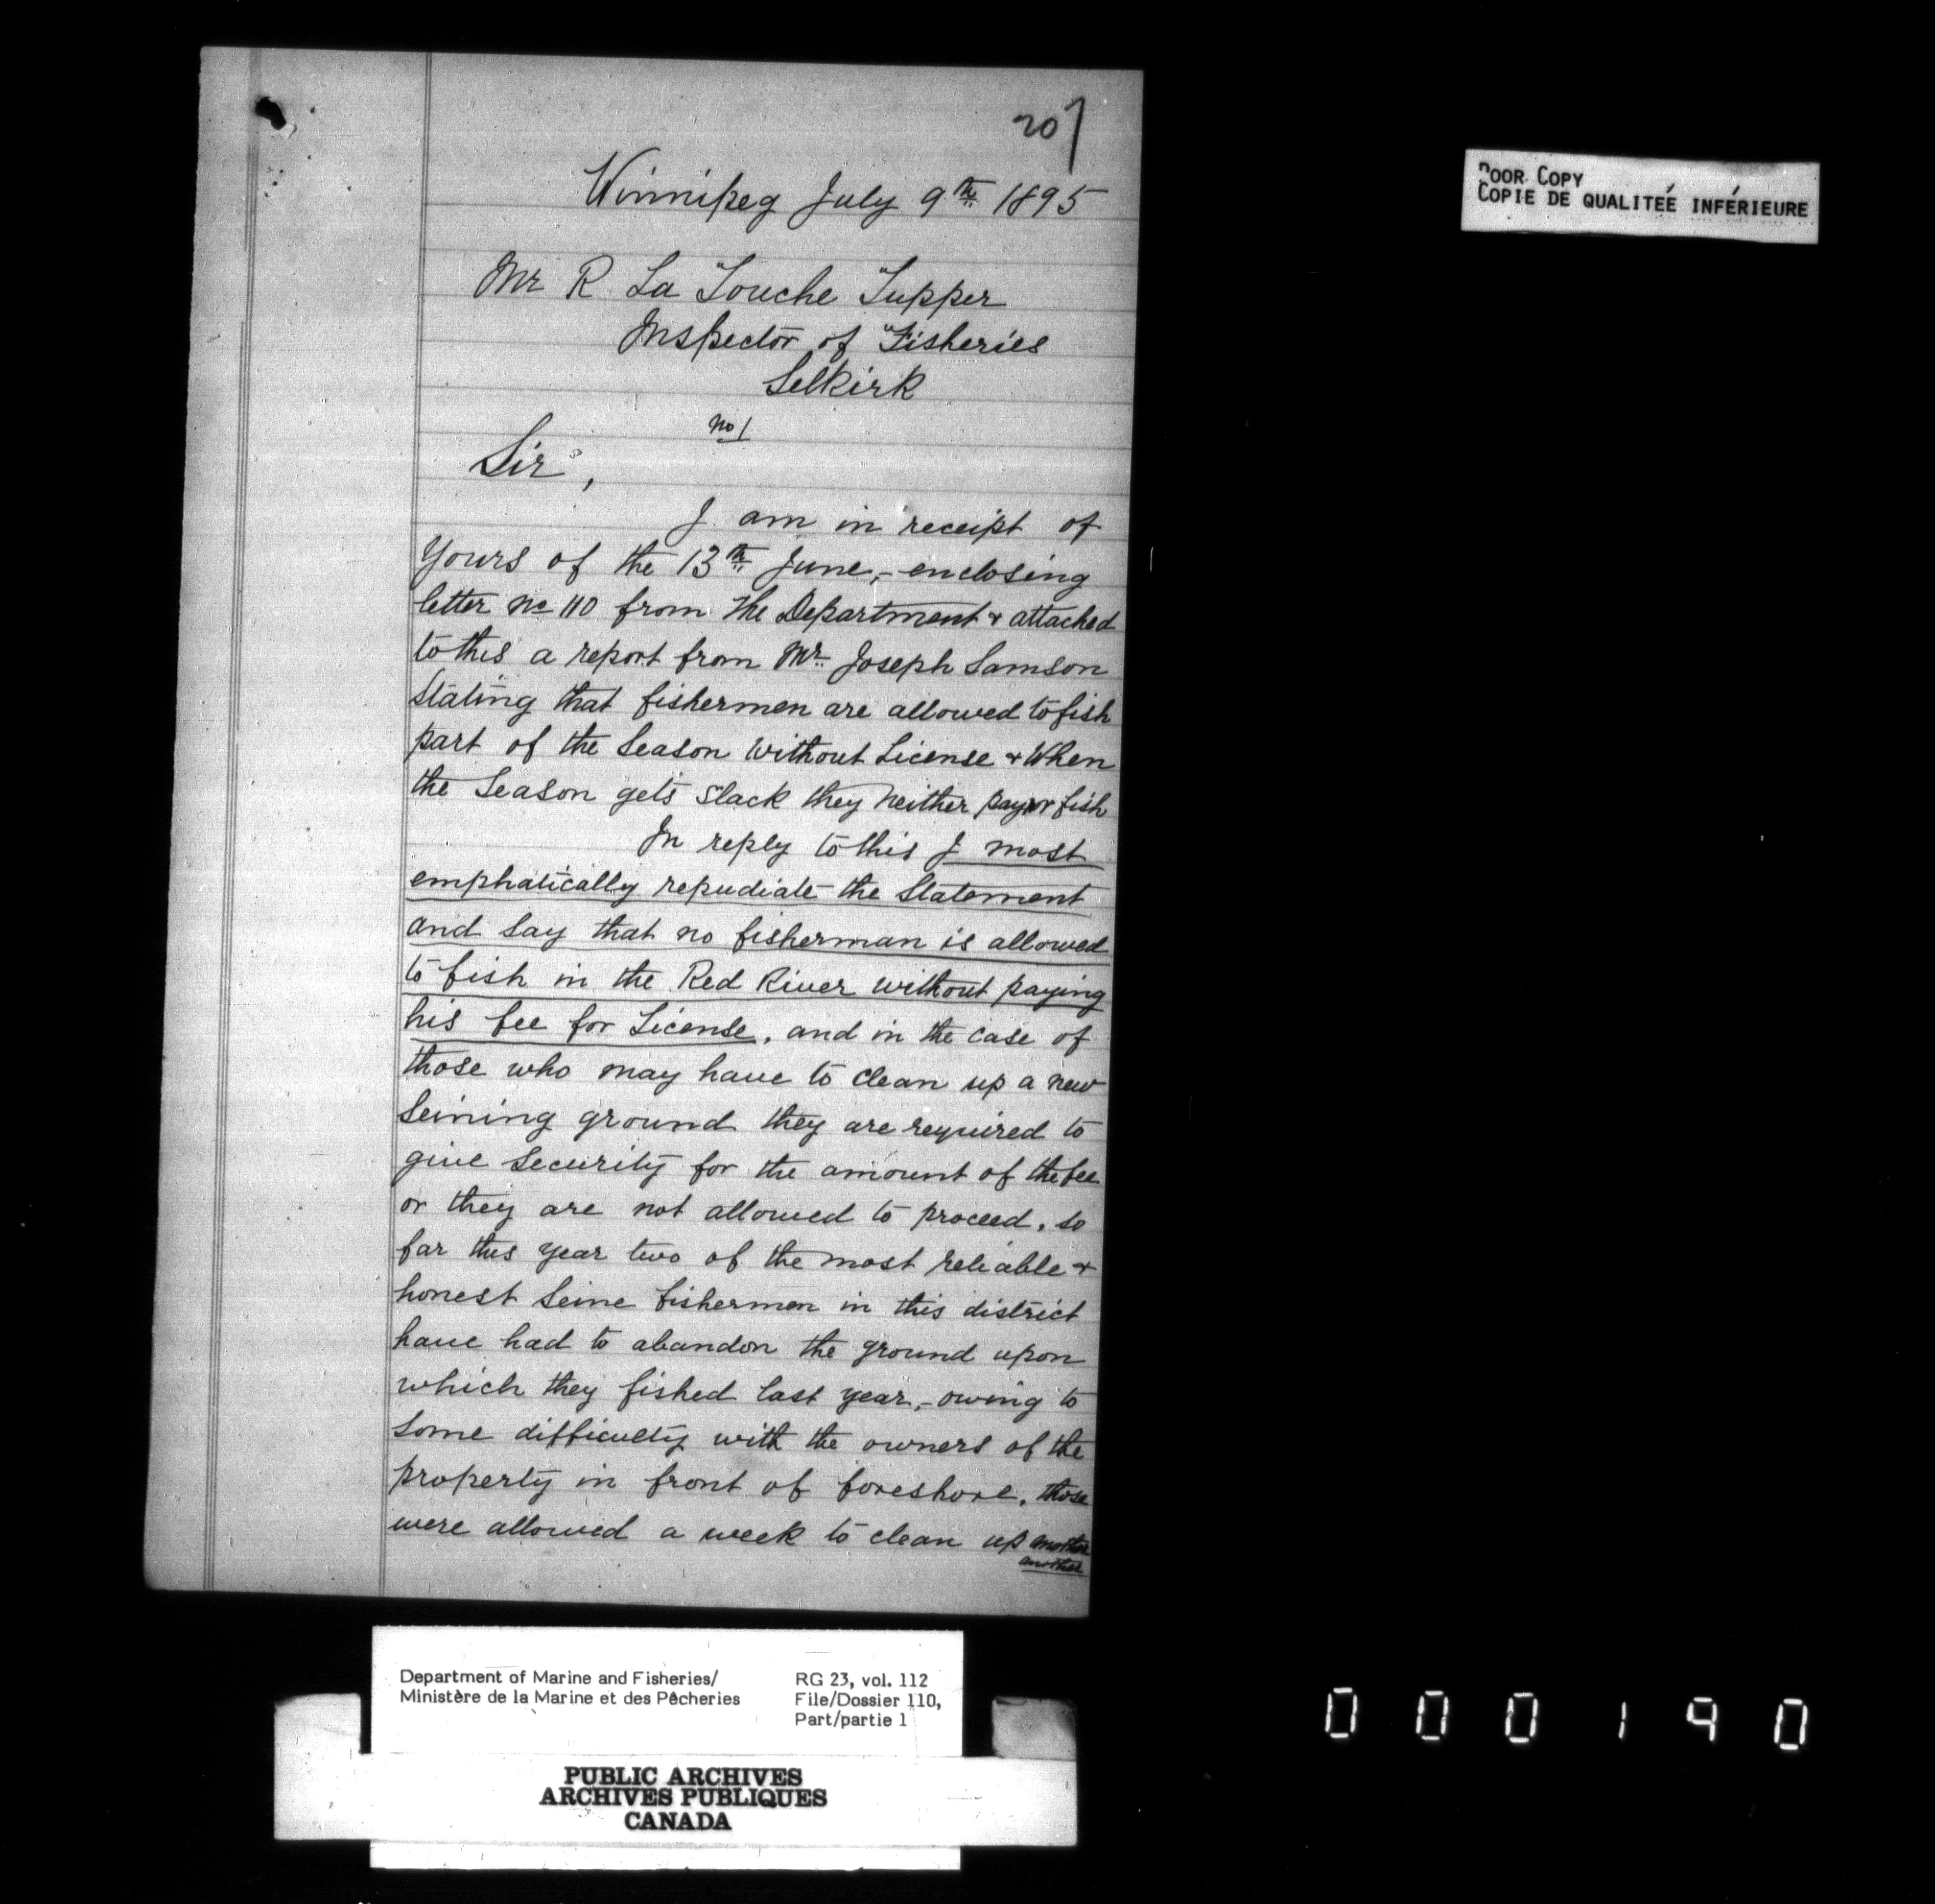 207
Winnipeg July 9th 1895
Mr R La Touche Tupper
Inspector of Fisheries
Selkirk
No 1
Sir,
I am in receipt of
Yours of the 13th June, - enclosing
letter No 110 from the Department & attached
to this a report from Mr. Joseph Samson
Stating that fishermen are allowed to fish
part of the Season without License & When
the Season gets slack they neither pay or fish
In reply to this I most
emphatically repudiate the Statement
and say that no fisherman is allowed
to fish in the Red River without paying
his fee for License, and in the case of
those who may have to clean up a new
Seining ground they are required to
give Security for the amount of the fee
or they are not allowed to proceed, so
far this year two of the most reliable &
honest Seine fishermen in this district
have had to abandon the ground upon
which they fished last year, - owing to
some difficulty with the owners of the
property in front of foreshore, those
were allowed a week to clean up another
another
POOR COPY
COPIE DE QUALITEÉ INFÉRIEURE
Department of Marine and Fisheries/
Ministère de la Marine et des Pêcheries
RG 23, vol. 112
File/Dossier 110,
Part/partie 1
PUBLIC ARCHIVES
ARCHIVES PUBLIQUES
CANADA
000190